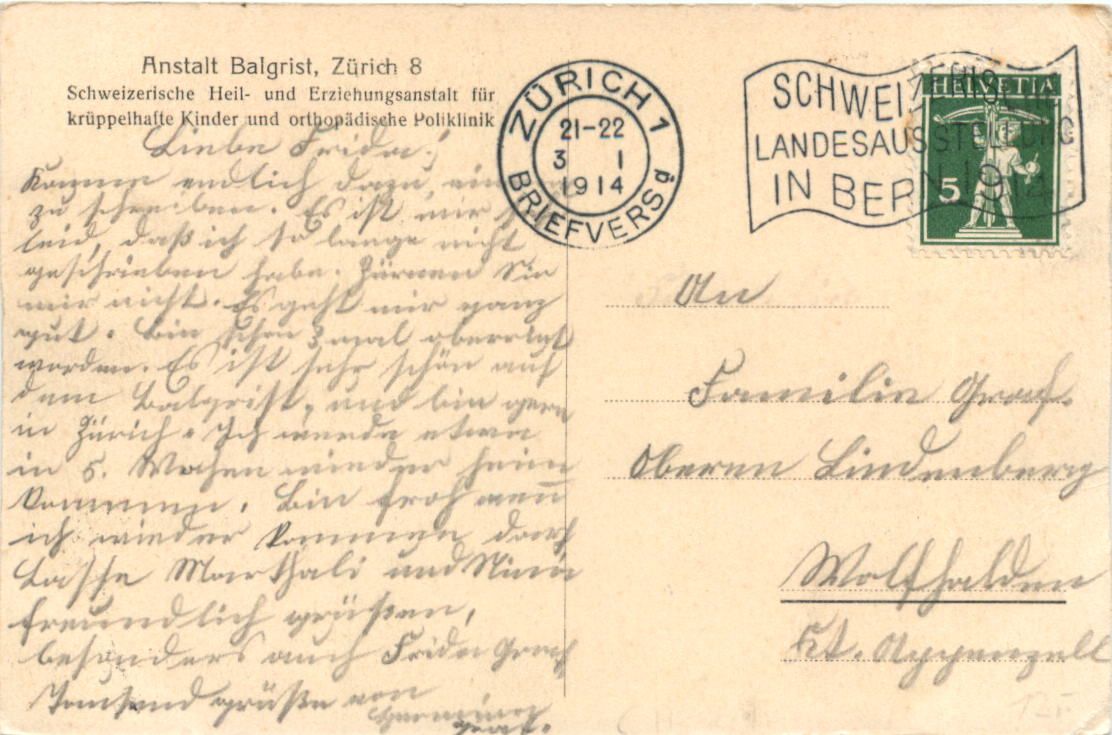 Anstalt Balgrist, Zürich 8
Schweizerische Heil- und Erziehungsanstalt für
krüppelhafte Kinder und orthopädische Poliklinik
ZÜRICH 1
21-22
3 I
1914
BRIEFVERSd
SCHWEIZERISCHE
LANDESAUSSTELLUNG
IN BERN 1914
HELVETIA
5
Liebe Frida!
Komme endlich dazu, ein
zu schreiben. Es ist mir
leid, daß ich so lange nicht
geschrieben habe. Zürnen Sie
mir nicht. Es geht mir ganz
gut. Bin schon 3 mal
worden. Es ist sehr schön auf
dem Balgrist, und bin gern
in Zürich. Ich werde etwa
in 5. Wochen wieder heim
kommen. Bin froh wenn
ich wieder kommen darf
Lasse Marthali und
freundlich grüßen,
besonders auch Frida Graf
Tausend grüße von
Hermine
Graf.
An
Familie Graf.
Oberen Lindenberg
Wolfhalden
Kt. Appenzell